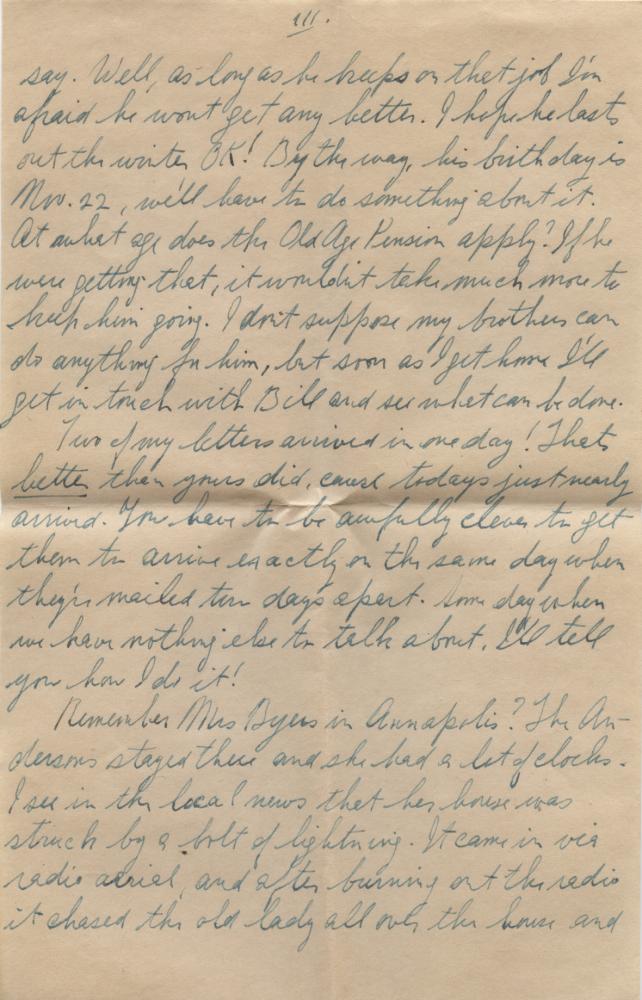 III.
say. Well, as long as he keeps on that job I'm
afraid he wont get any better. I hope he lasts
out the winter OK! By the way, his birthday is
Nov. 22, we'll have to do something about it.
At what age does the Old Age Pension apply? If he
were getting that, it wouldn't take much more to
keep him going. I don't suppose my brothers can
do anything for him, but soon as I get home I'll
get in touch with Bill and see what can be done.
Two of my letters arrived in one day! Thats
better than yours did, cause todays just nearly
arrived. You have to be awfully clever to get
them to arrive exactly on the same day when
they're mailed two days apart. Some day when
we have nothing else to talk about, I'll tell
you how I do it!
Remember Mrs Byers in Annapolis? The An-
dersons stayed there and she had a lot of clocks.
I see in the local news that her house was
struck by a bolt of lightning. It came in via
radio aerial, and after burning out the radio
it chased the old lady all over the house and